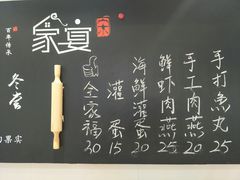 百年传承
家宴
冬尝
勺果实
手打魚丸 25
手工肉燕 20
鲜虾肉燕 25
海鲜灌蛋 20
灌蛋 15
全家福 30